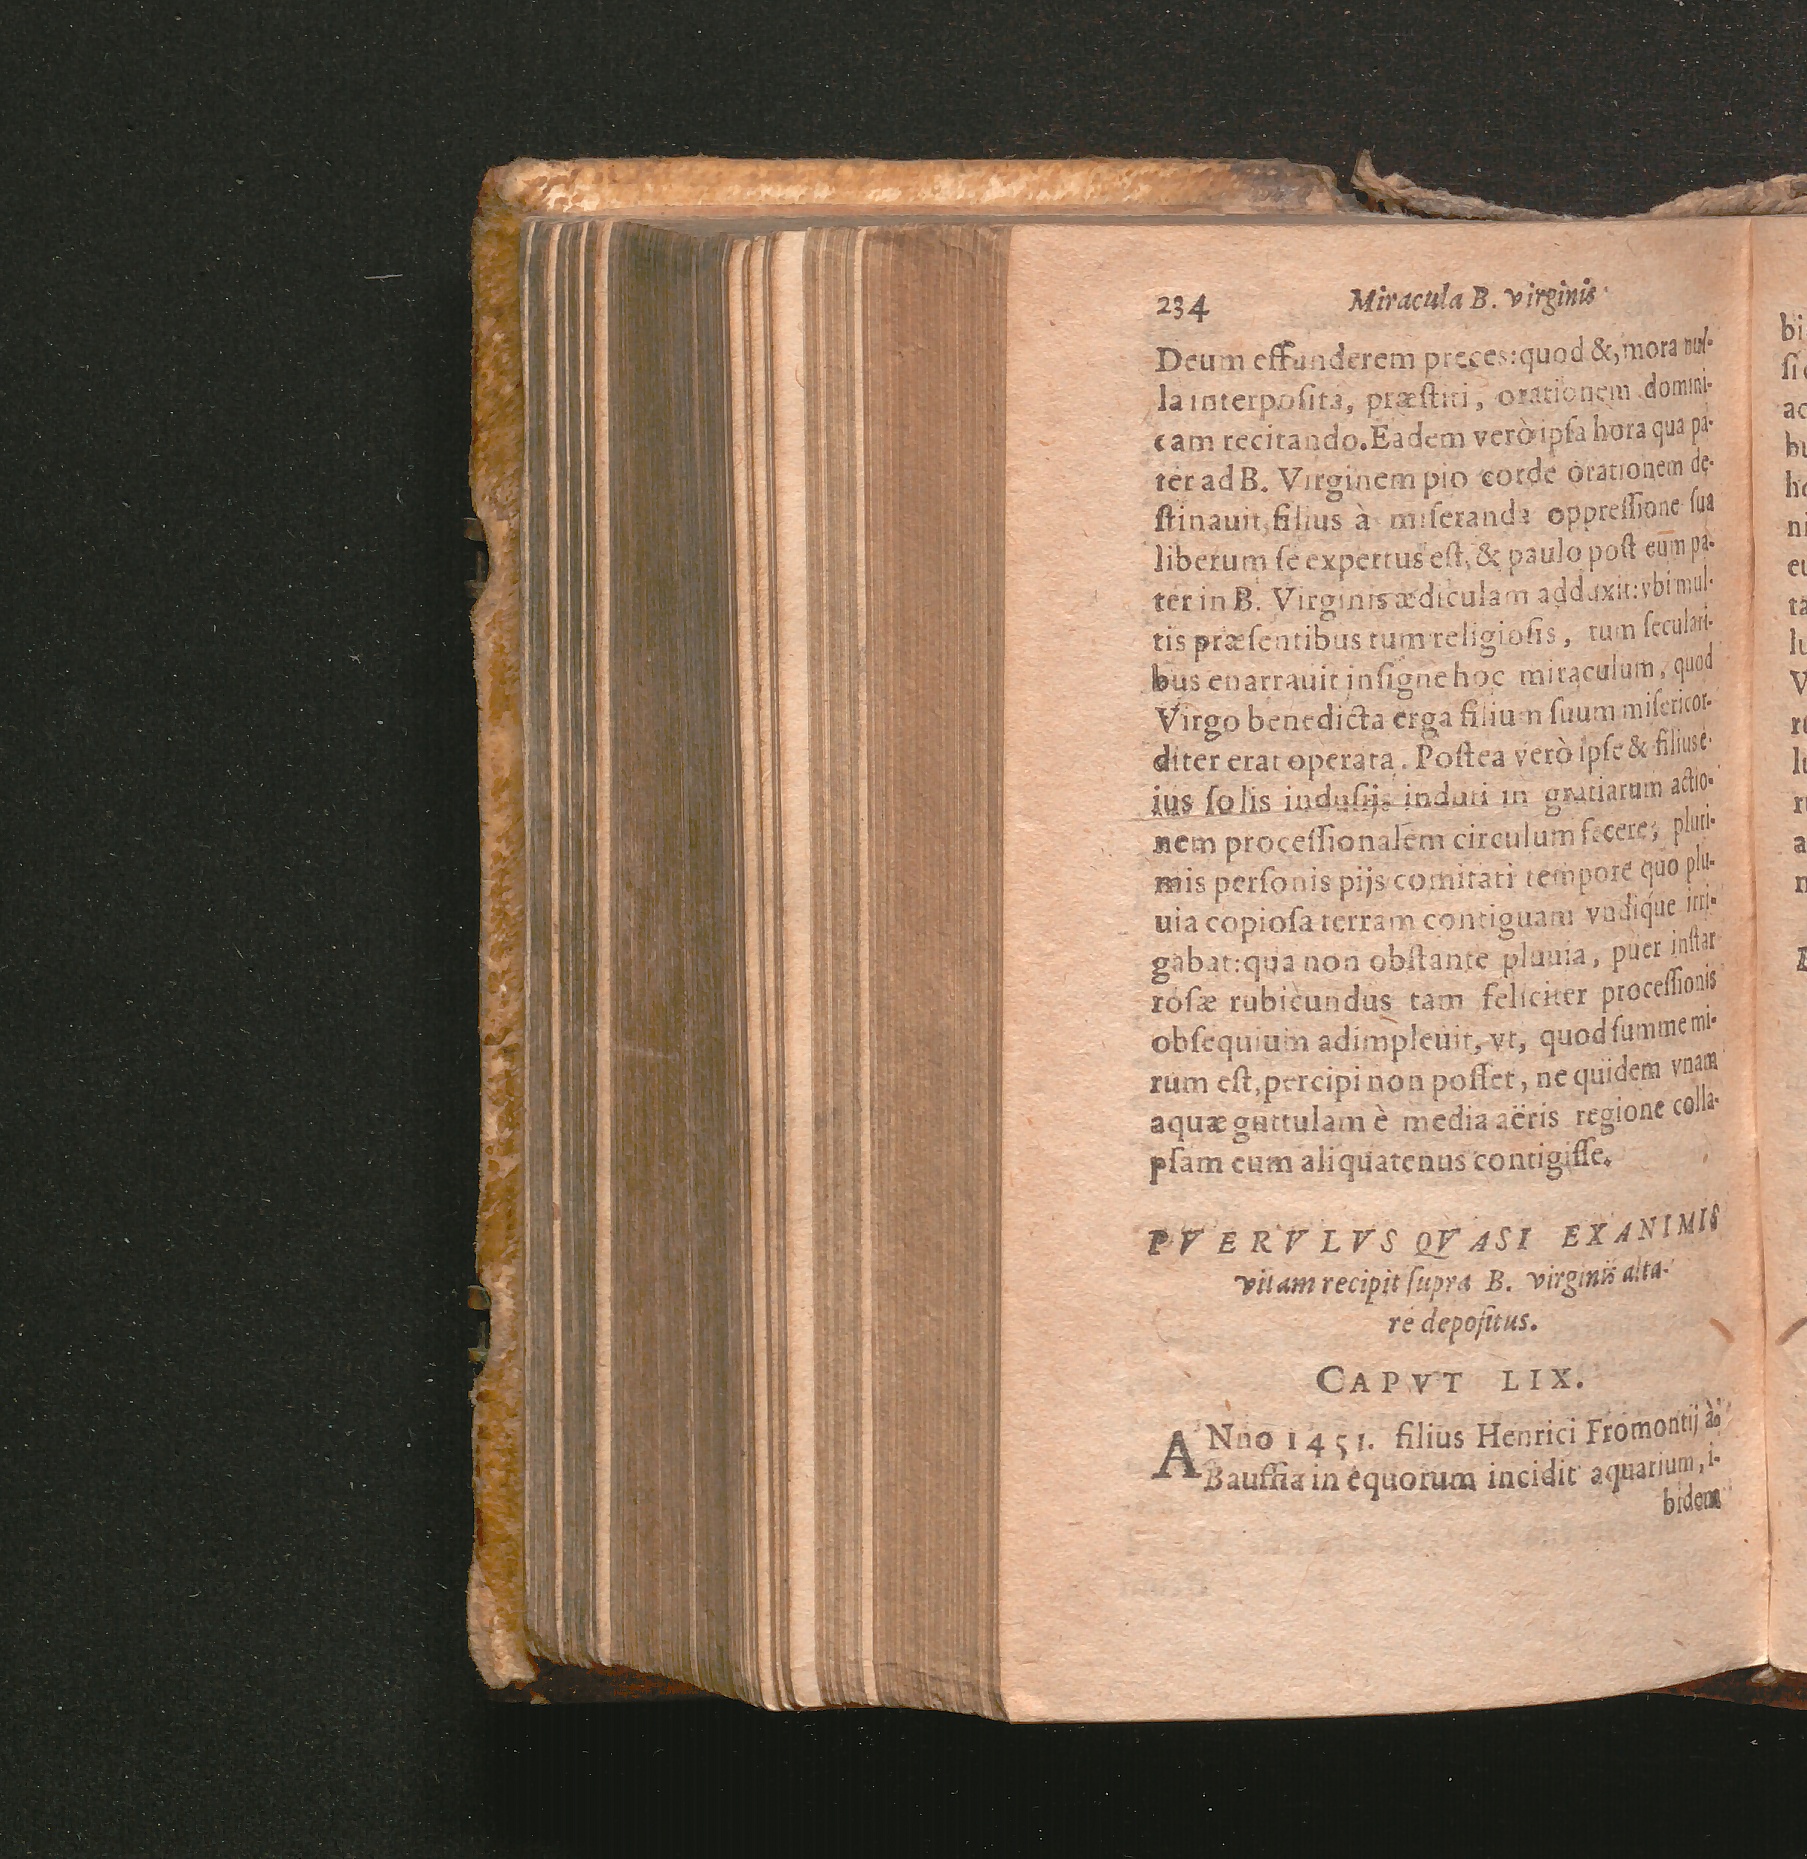 234 Miracula B. virginis
Deum effunderem preces:quod &, mora nul-
la interposita, præstiti, orationem domini-
cam recitando. Eadem verò ipsa hora qua pa-
ter ad B. Virginem pio corde orationem de-
stinauit, filius à miseranda oppressione sua
liberum se expertus est, & paulo post eum pa-
ter in B. Virginis ædiculam adduxit: vbi mul-
tis præsentibus tum religiosis, tum seculari-
bus enarrauit insigne hoc miraculum, quod
Virgo benedicta erga filium suum misericor-
diter erat operata. Postea verò ipse & filius e-
ius solis indusijs induti in gratiarum actio-
nem processionalem circulum fecere; pluri-
mis personis pijs comitati tempore quo plu-
uia copiosa terram contiguam vndique irri-
gabat: qua non obstante pluuia, puer instar
rosæ rubicundus tam feliciter processionis
obsequium adimpleuit, vt, quod summe mi-
rum est, percipi non posset, ne quidem vnam
aquæ guttulam è media aëris regione colla-
psam eum aliquatenus contigisse.
PVERVLVS QVASI EXANIMIS
vitam recipit supra B. virginis alta-
re depositus.
CAPVT LIX.
ANno 1451. filius Henrici Fromontij à
Bauffia in equorum incidit aquarium, i-
bidem